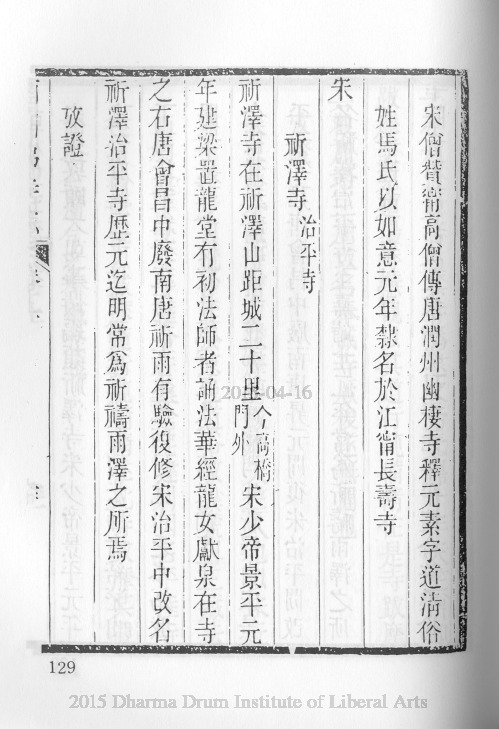 宋僧贊甯高僧傳唐潤州幽棲寺釋元素字道淸俗
姓馬氏以如意元年隸名於江甯長壽寺
宋
祈澤寺 治平寺
祈澤寺在祈澤山距城二十里今高橋門外宋少帝景平元
年建梁置龍堂有初法師者誦法華經龍女獻泉在寺
之右唐會昌中廢南唐祈雨有驗復修宋治平中改名
祈澤治平寺歷元迄明常爲祈禱雨澤之所焉
攷證
129
2015-04-16
2015 Dharma Drum Institute of Liberal Arts